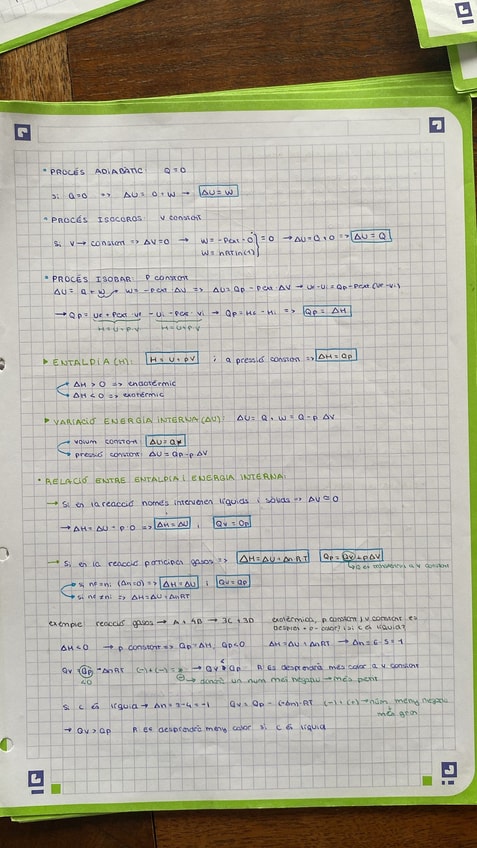 * PROCÉS ADIABÀTIC Q=0
Si Q=0 => ΔU = 0+W → ΔU = W
* PROCÉS ISOCOROS: V constant
Si V → constant => ΔV=0 → W = -Pext·0 } = 0 → ΔU=Q+0 => ΔU = Q
W = nRTln(1)
* PROCÉS ISOBAR: P constant
ΔU = Q + W → W = -Pext·ΔV => ΔU = Qp - Pext·ΔV → Uf-Ui = Qp-Pext(Vf-Vi)
→ Qp = Uf + Pext·Vf - Ui - Pext·Vi → Qp = Hf - Hi => Qp = ΔH
H=U+P·V H=U+P·V
▸ ENTALPIA (H): H = U + PV ; a pressió constant => ΔH = Qp
ΔH > 0 => endotèrmic
ΔH < 0 => exotèrmic
▸ VARIACIÓ ENERGIA INTERNA (ΔU): ΔU = Q + W = Q - p ΔV
volum constant ΔU = Qv
pressió constant: ΔU = Qp - p ΔV
* RELACIÓ ENTRE ENTALPIA I ENERGIA INTERNA:
→ Si en la reacció només intervenen líquids i sòlids => ΔV ≅ 0
→ ΔH = ΔU - p·0 => ΔH = ΔU ; Qv = Qp
→ Si en la reacció participen gasos => ΔH = ΔU + ΔnRT Qp = Qv + pΔV
Si nf=ni (Δn=0) => ΔH = ΔU ; Qv = Qp
Si nf≠ni => ΔH = ΔU + ΔnRT
exemple reacció gasos → A + 4B → 3C + 3D
ΔH < 0 → p constant => Qp = ΔH, Qp<0 ΔH = ΔU + ΔnRT → Δn = 6-5 = 1
Qv = Qp - ΔnRT (-)+(-) → Qv Qp A es desprendrà més calor a V constant
<0 donarà un num més negatiu → més petit
Si C és líquid → Δn = 3-4 = -1 Qv = Qp - (-Δn)·RT (-)+(+) → núm. menys negatiu
més gran
→ Qv > Qp A es desprendrà menys calor si C és líquid